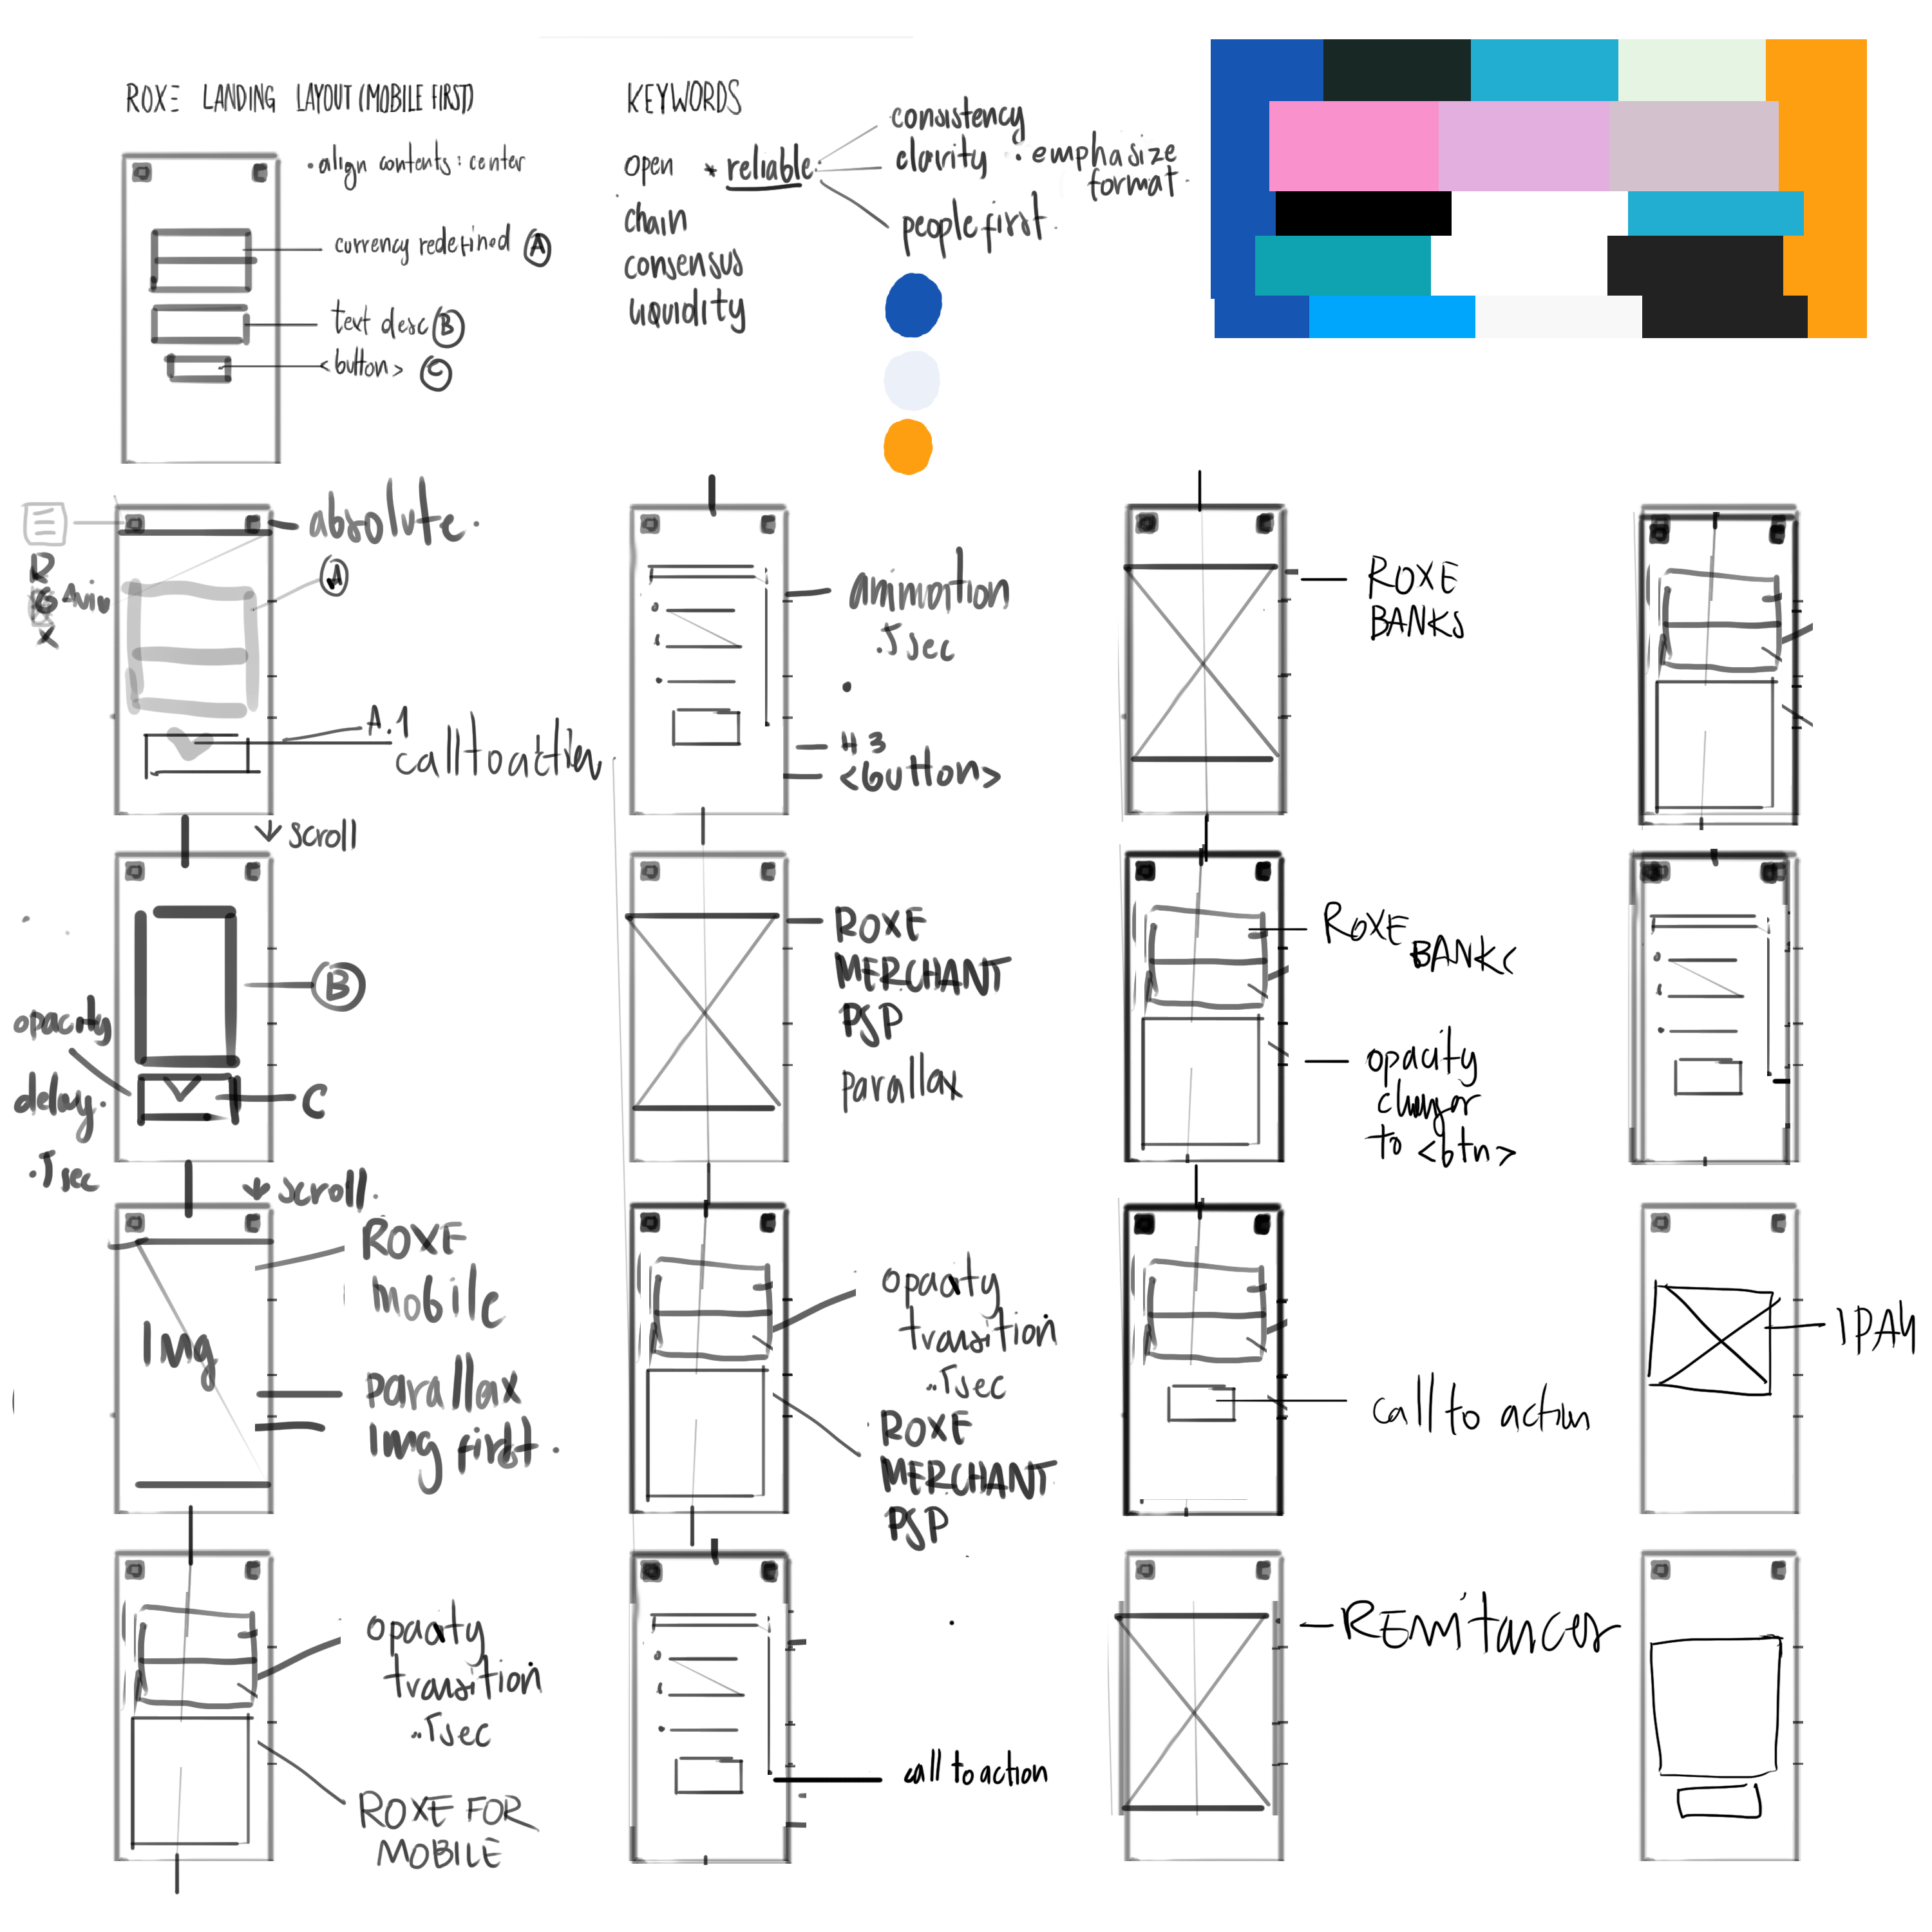 ROXE LANDING LAYOUT (MOBILE FIRST)
• align contents : center
currency redefined A
text desc B
<button> C
KEYWORDS
open * reliable
chain
consensus
liquidity
consistency
clarity • emphasize
format
people first
absolute.
A
A.1
call to action
↓ scroll
B
C
opacity
delay.
.5 sec
↓ scroll.
Img
ROXE
mobile
parallax
Img first.
opacity
transition
.5sec
ROXE FOR
MOBILE
animation
.5 sec
H3
<button>
ROXE
MERCHANT
PSP
parallax
opacity
transition
.5sec
ROXE
MERCHANT
PSP
call to action
ROXE
BANKS
ROXE
BANKS
opacity
to <btn>
call to action
REmitances
IPAY